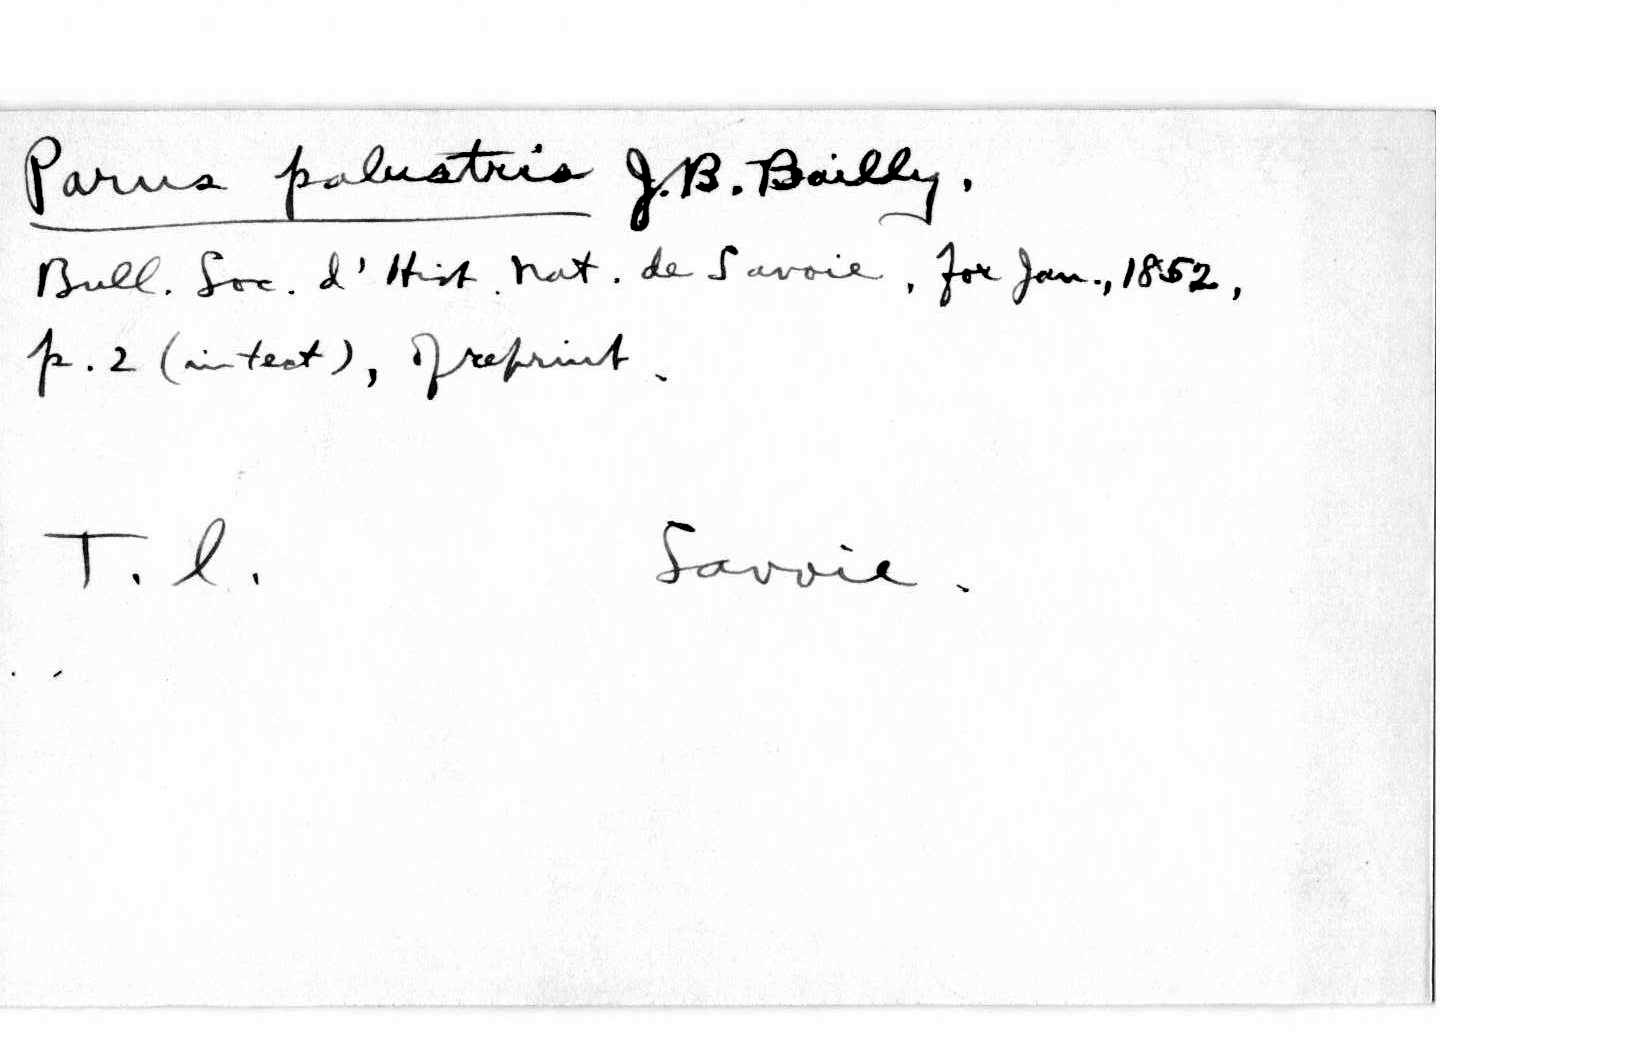 Parus palustris J.B. Bailly.
Bull. Soc. d' Hist. Nat. de Savoie, for Jan., 1852,
p. 2 (in text), of reprint.
T. l. Savoie.